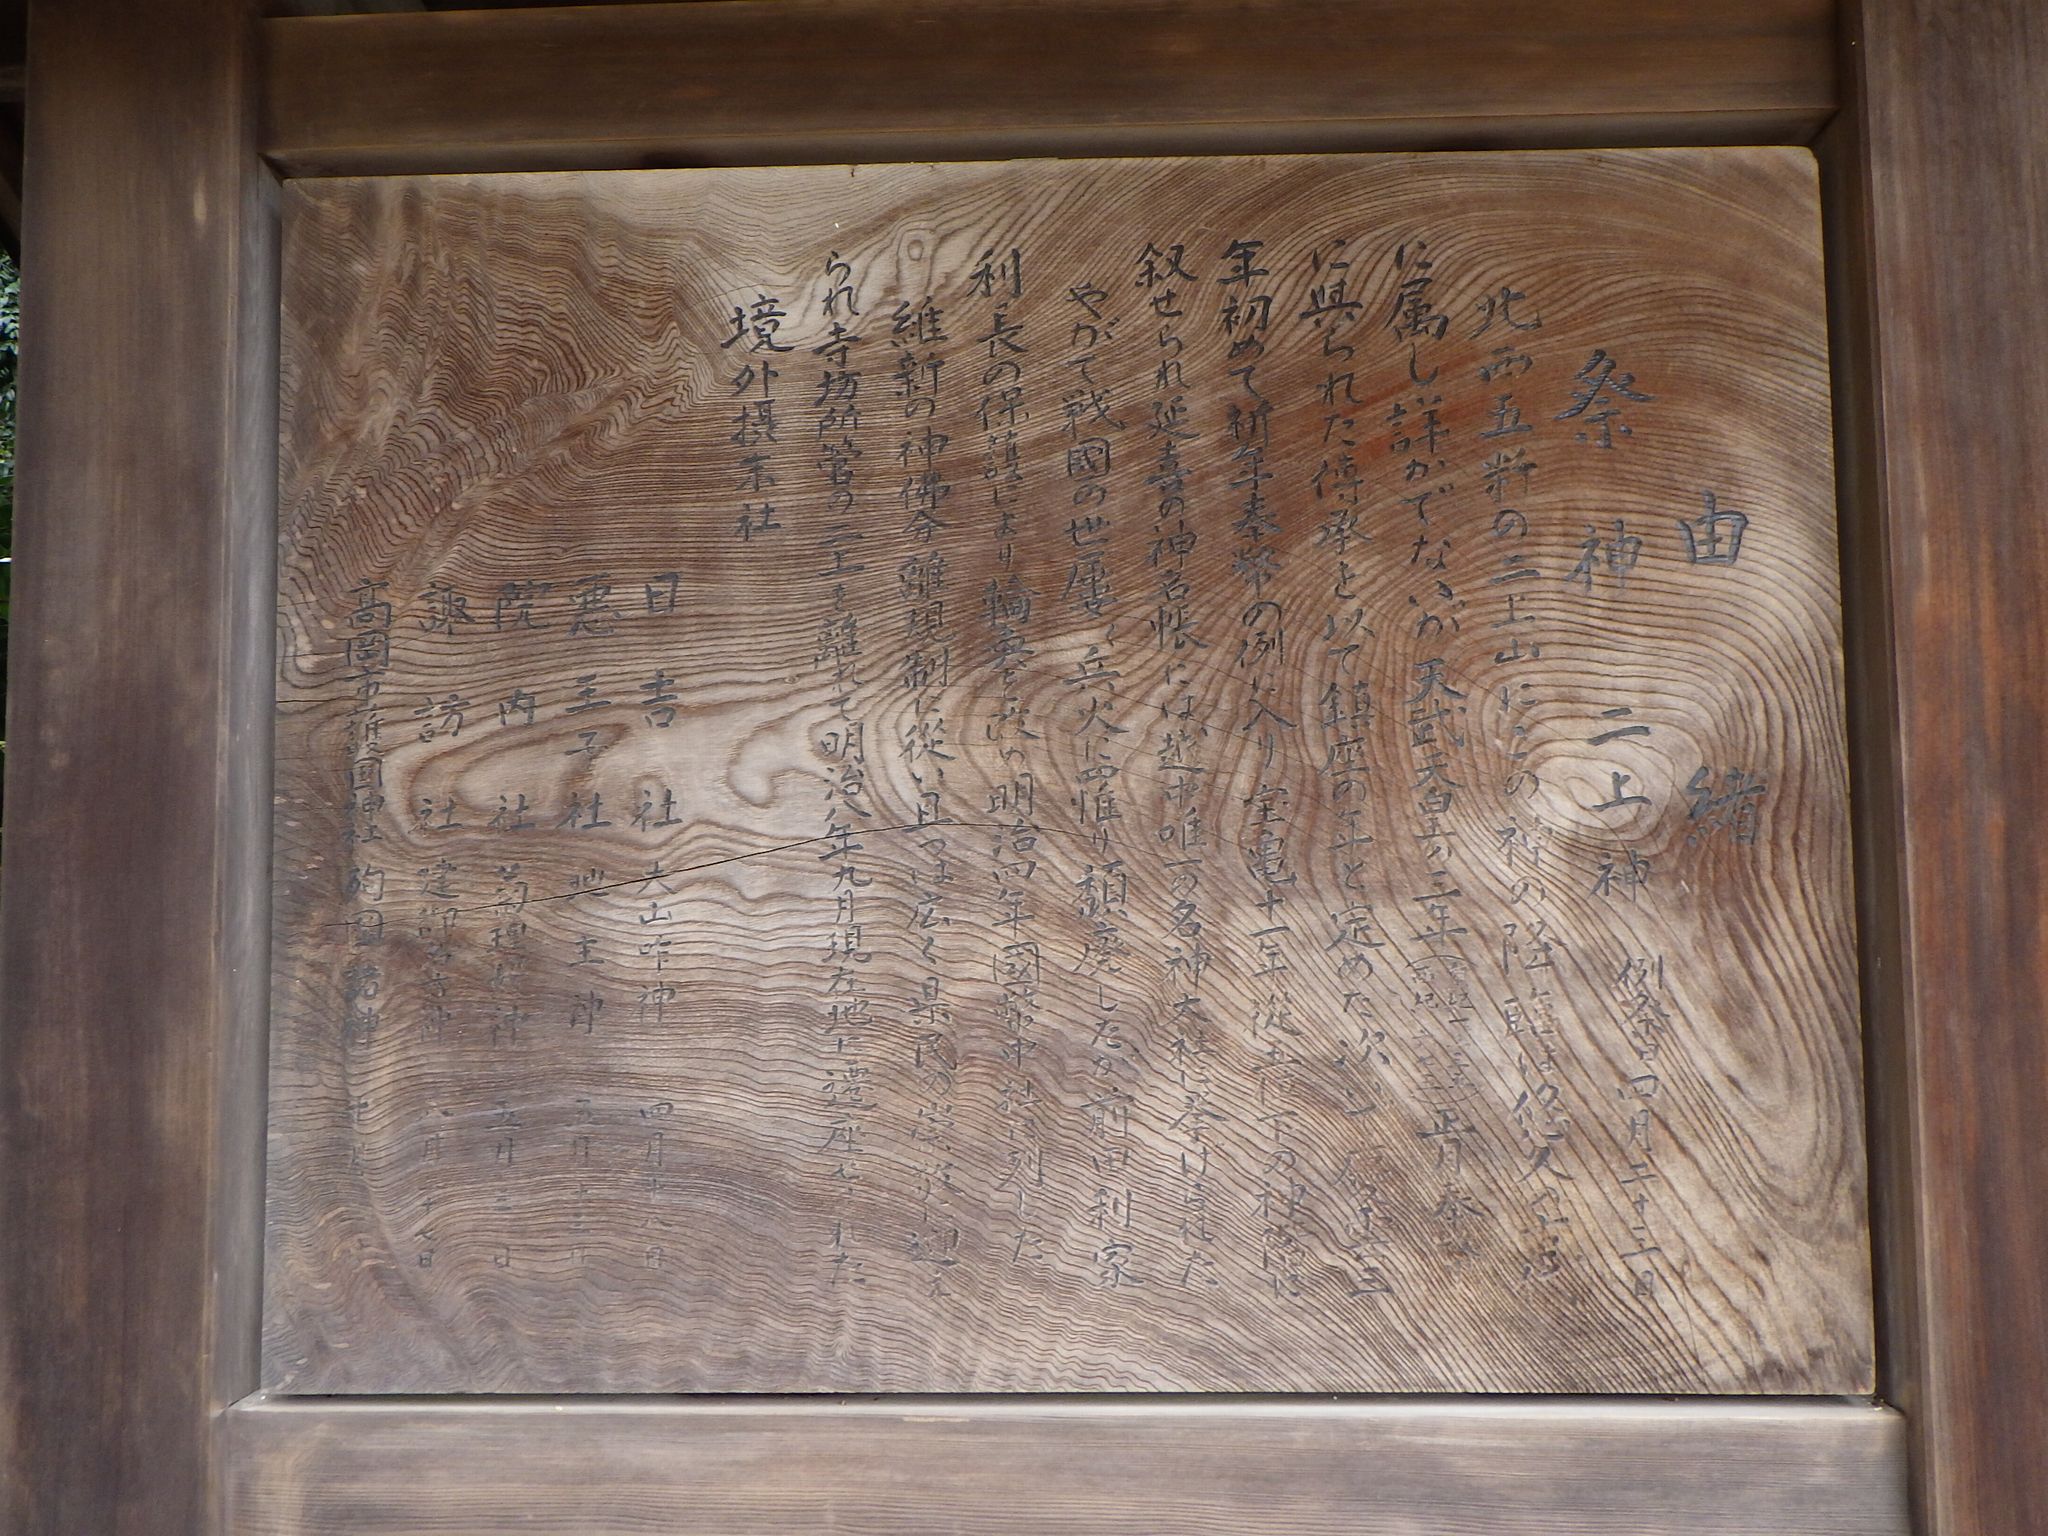 由緒
祭神 二上神 例祭日四月二十三日
北西五粁の二上山にこの神の降臨は悠久
に属し詳かでないが 天武天皇の三年 正月奉
に與られた傳承と以て鎮座の年と定めた次いで
年初めて祈年奉幣の例に入り宝亀十一年從五位下の神階に
叙せられ延喜の神名帳には越中唯一の名神大社に挙げられた
やがて戦國の世屢々兵火に罹り頽廃したが前田利家
利長の保護により輪奐を改め明治四年國幣中社に列した
維新の神佛分離現制に從い且つは広く県民の崇敬に迎え
られ寺坊所管の二上を離れて明治八年九月現在地に遷座せられた
境外摂末社
日吉社 大山咋神 四月十八日
悪王子社 地主神 五月十三日
院内社 菊理媛神 五月三日
諏訪社 建御名方神 八月十七日
高岡市護國神社 殉國諸神